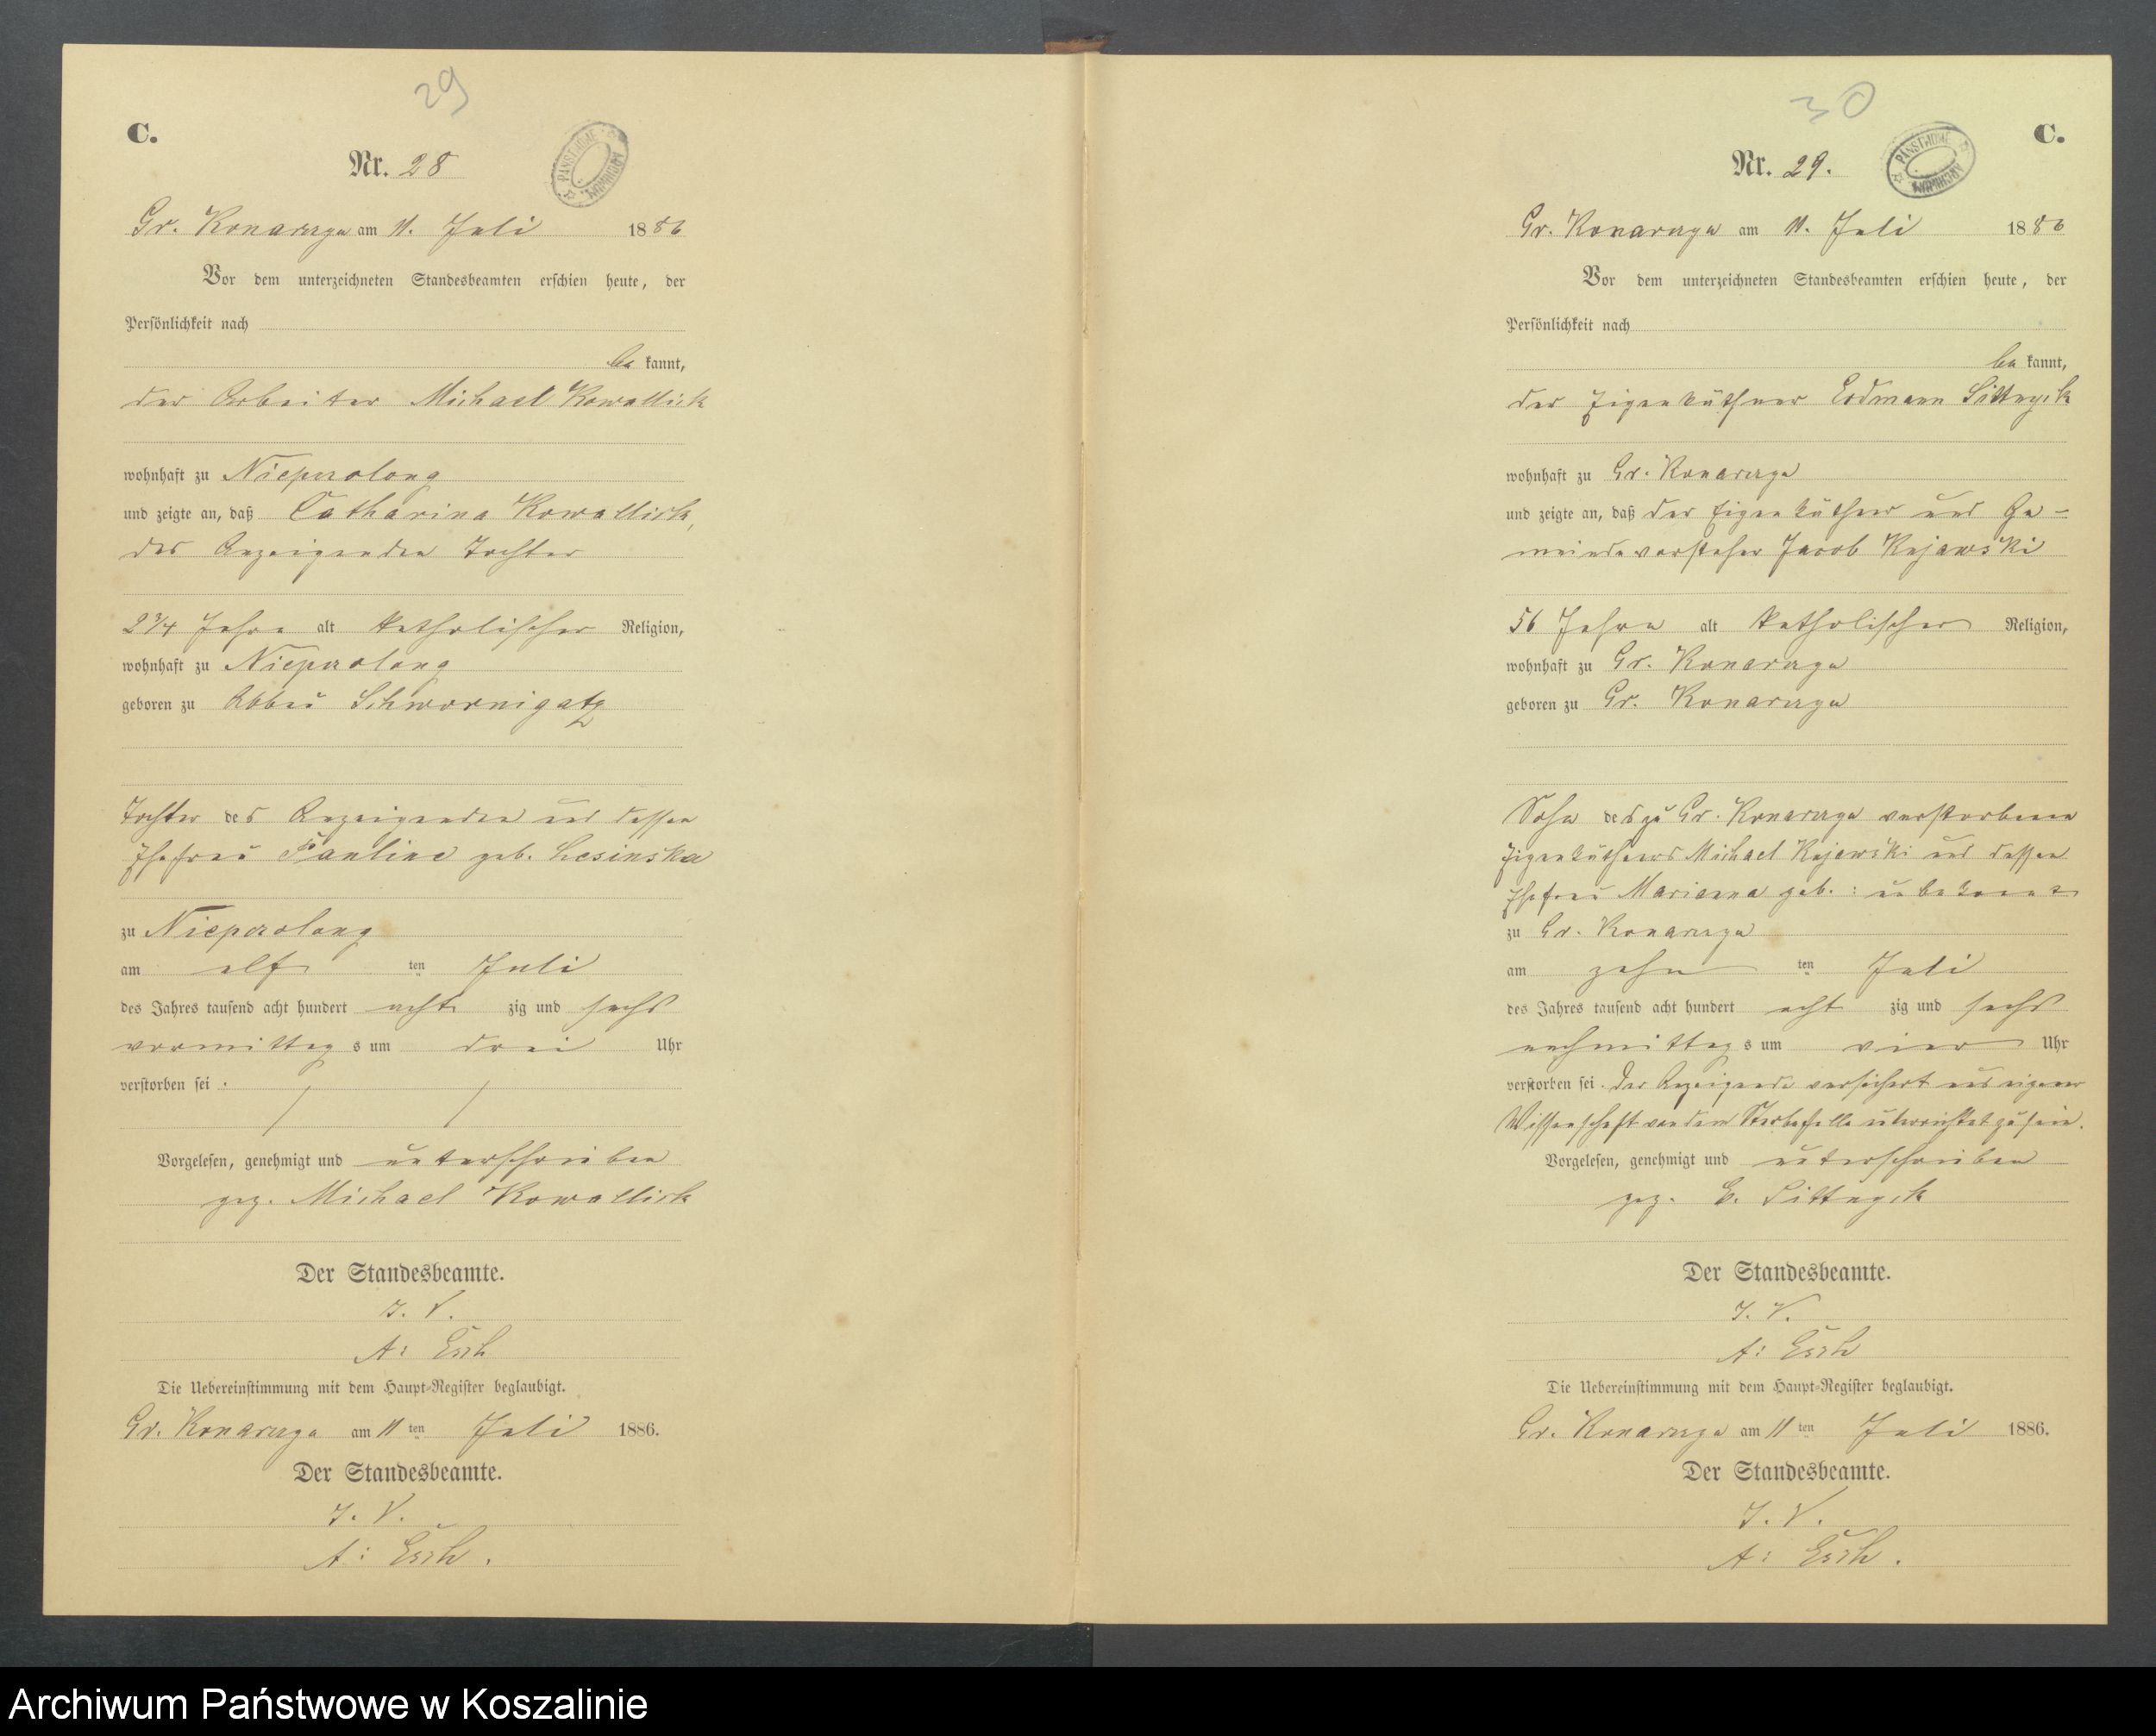 29
C.
Nr. 28
PAŃSTWOWE ARCHIWUM
Gr. Konarczyn am 11. Juli 1886
Vor dem unterzeichneten Standesbeamten erschien heute, der
Persönlichkeit nach
be kannt,
der Arbeiter Michael Kowallick
wohnhaft zu Nieperolong
und zeigte an, daß Catharina Kowallick,
des Anzeigenden Tochter
2 3/4 Jahre alt katholischer Religion,
wohnhaft zu Nieperolong
geboren zu Abbau Schwornigatz
Tochter des Anzeigenden und dessen
Ehefrau Pauline geb. Lesinska
zu Nieperolong
am elf ten Juli
des Jahres tausend acht hundert acht zig und sechs
vormittag s um drei Uhr
verstorben sei.
Vorgelesen, genehmigt und unterschrieben
gez. Michael Kowallick
Der Standesbeamte.
J. V.
A: Esch
Die Uebereinstimmung mit dem Haupt-Register beglaubigt.
Gr. Konarczyn am 11 ten Juli 1886.
Der Standesbeamte.
J. V.
A: Esch.
30
C.
Nr. 29.
PAŃSTWOWE ARCHIWUM
Gr. Konarczyn am 11. Juli 1886
Vor dem unterzeichneten Standesbeamten erschien heute, der
Persönlichkeit nach
be kannt,
der Eigenkäthner Erdmann
wohnhaft zu Gr. Konarczyn
und zeigte an, daß der Eigenkäthner und Ge-
meindevorsteher Jacob Kujawski
56 Jahre alt katholischer Religion,
wohnhaft zu Gr. Konarczyn
geboren zu Gr. Konarczyn
Sohn des zu Gr. Konarczyn verstorbenen
Eigenkäthners Michael Kujawski und dessen
Ehefrau Marianna geb.: unbekannt
zu Gr. Konarczyn
am zehn ten Juli
des Jahres tausend acht hundert acht zig und sechs
nachmittag s um vier Uhr
verstorben sei. Der Anzeigende versichert aus eigener
Wissenschaft von dem Sterbefalle unterrichtet zu sein.
Vorgelesen, genehmigt und unterschrieben
gez. E.
Der Standesbeamte.
J. V.
A: Esch
Die Uebereinstimmung mit dem Haupt-Register beglaubigt.
Gr. Konarczyn am 11 ten Juli 1886.
Der Standesbeamte.
J. V.
A: Esch.
Archiwum Państwowe w Koszalinie